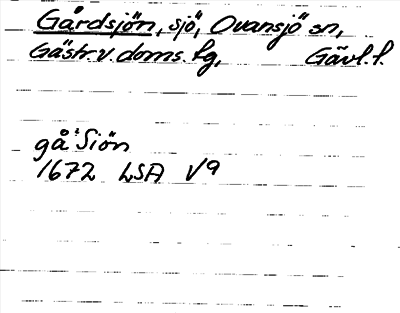 Gårdsjön, sjö, Ovansjö sn,
Gästr.v. doms.lg, Gävl.l.
gå Siön
1672 LSA V9